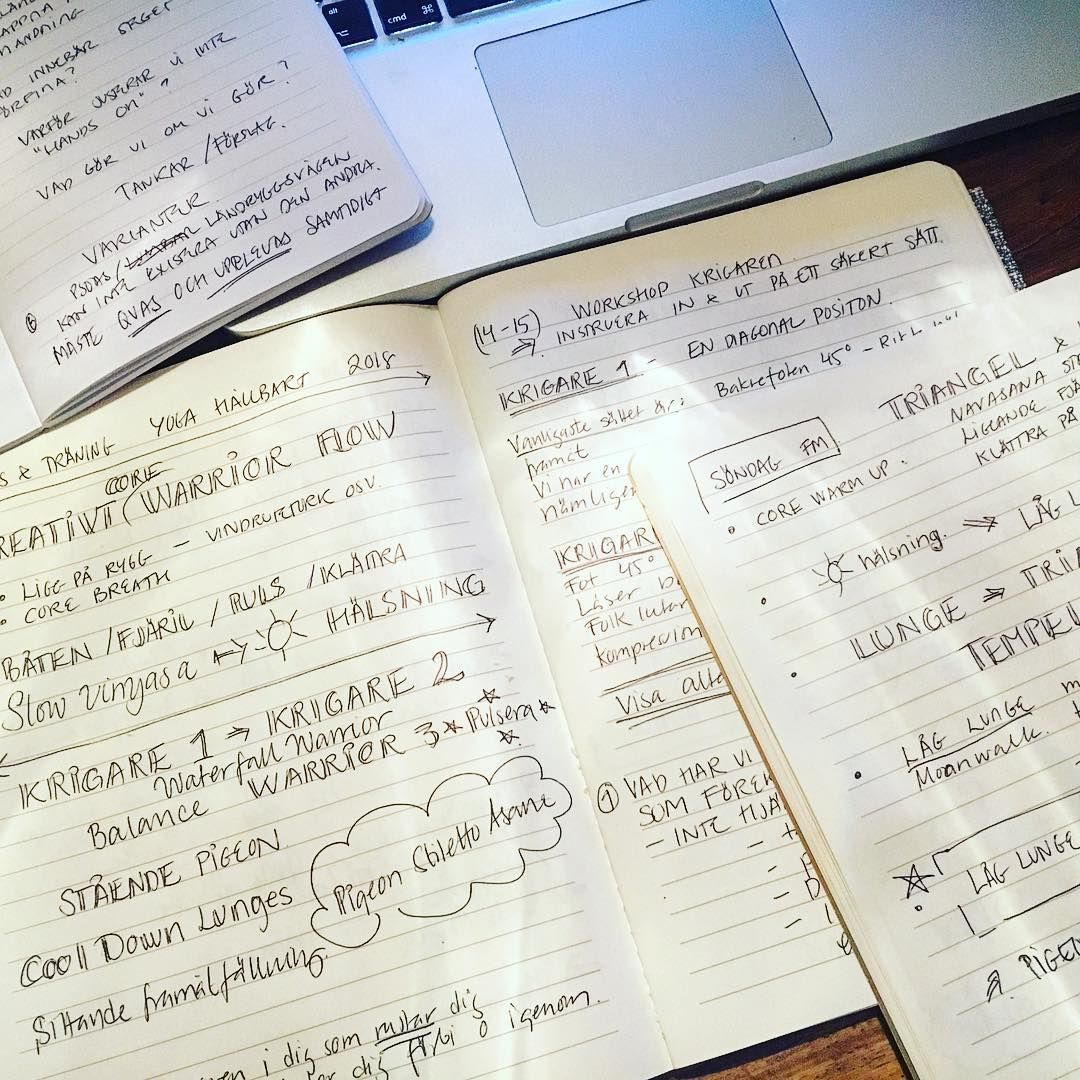 alt
cmd ⌘
INNEBÄR
VARFÖR JUSTERAR VI INTE
"HANDS ON"?
VAD GÖR VI OM VI GÖR?
TANKAR/FÖRSLAG.
VARIANTER
PSOAS/ LÄNDRYGGSVÄGEN
KAN INTE EXISTERA UTAN DEN ANDRA.
MÅSTE OCH UPPLEVAS SAMTIDIGT
& TRÄNING YOGA HÅLLBART 2018
CORE
REATIVT WARRIOR FLOW
• LIGG PÅ RYGG - OSV.
• CORE BREATH
BÅTEN/FJÄRIL/PULS/KLÄTTRA
Slow Vinyasa HÄLSNING
KRIGARE 1 → KRIGARE 2
Waterfall Warrior
WARRIOR 3 * Pulsera *
Balance
STÅENDE PIGEON
Pigeon Stiletto Asana
Cool Down Lunges
Sittande framåtfällning.
i dig som dig
dig igenom.
(14-15) WORKSHOP KRIGAREN
⇒. INSTRUERA IN & UT PÅ ETT SÄKERT SÄTT.
KRIGARE 1 - EN DIAGONAL POSITON.
Bakrefoten 45° -
Vanligaste sättet är:
framåt
Vi har en
nämligen
KRIGAR
Fot 45°
Låser
Folk lutar
kompression
Visa alla
① VAD HAR VI
SOM FÖREN
- INTE HJÄ
TRIANGEL &
SÖNDAG FM
NAVASANA
LIGGANDE
KLÄTTRA PÅ
• CORE WARM UP.
• hälsning. ⇒ LÅG L
LUNGE ⇒ TRIA
TEMPEL
• LÅG LUNGE
Moonwalk.
LÅG LUNGE
PIGEO